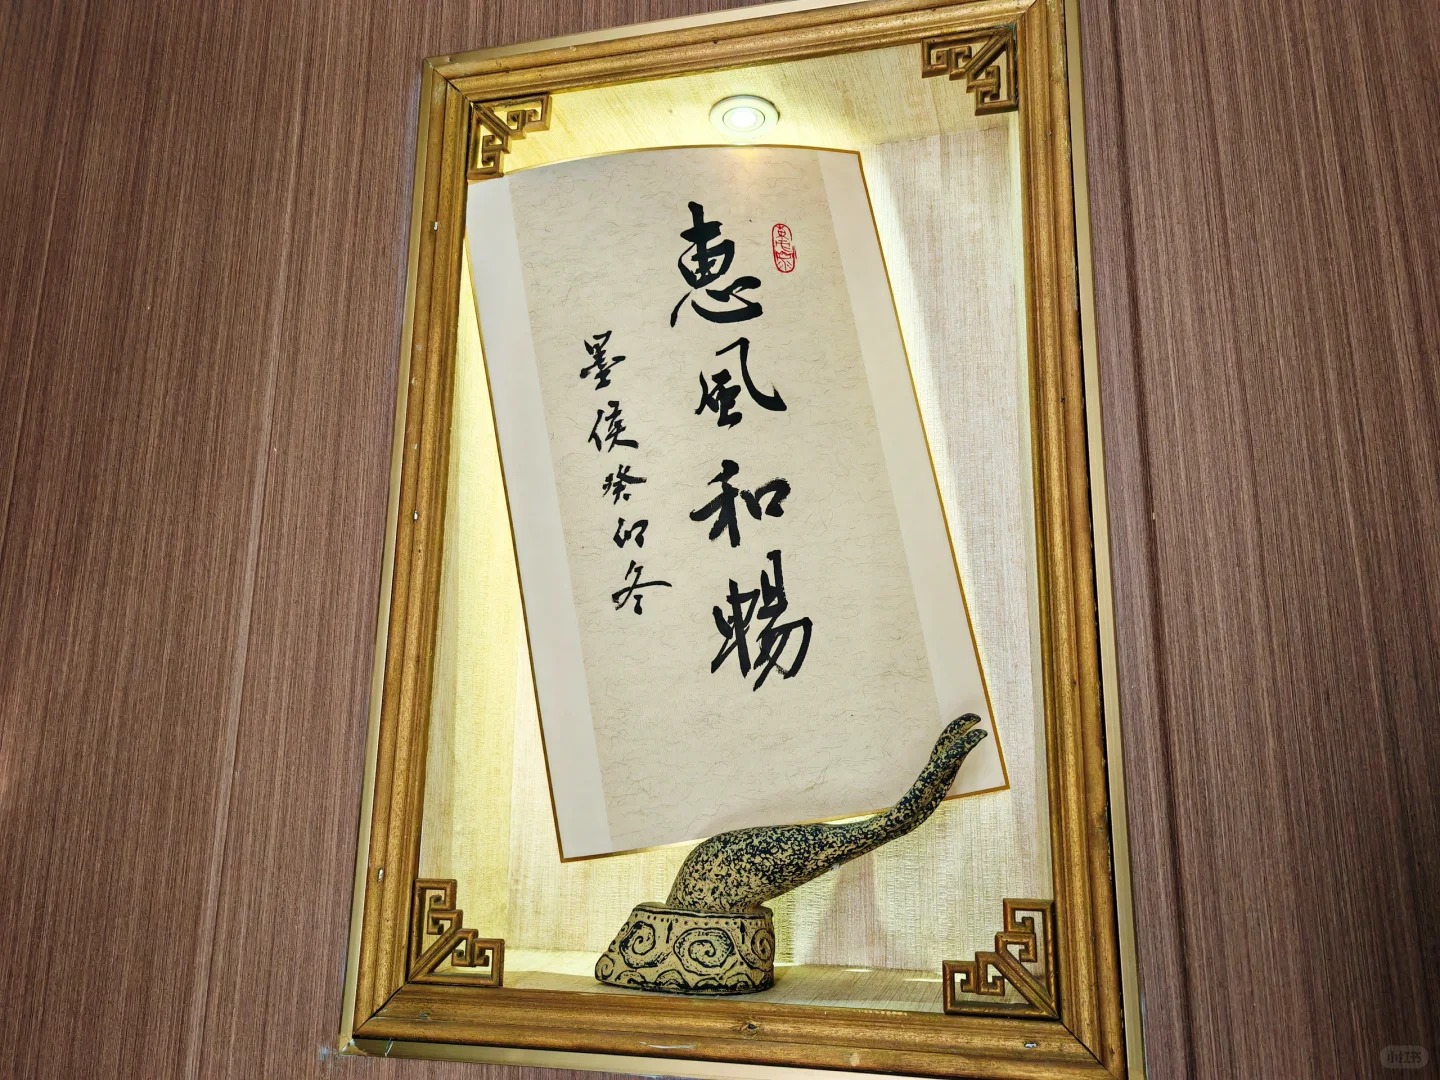 惠風和暢
墨侯癸卯冬
小红书